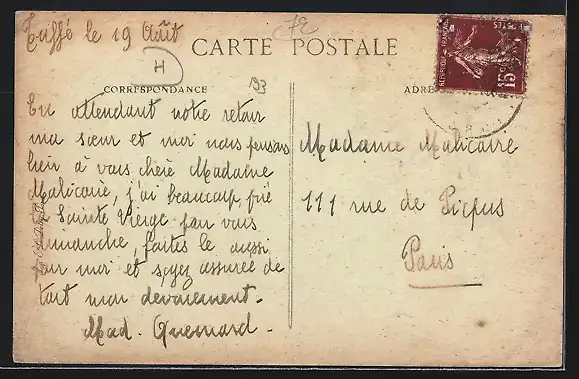 Tuffé le 19 Août
72
CARTE POSTALE
H
193
CORRESPONDANCE
En attendant notre retour
ma sœur et moi nous pensons
bien à vous chère Madame
Malicaire, j'ai beaucoup prié
la Sainte Vierge pour vous
dimanche, faites le aussi
pour moi et soyez assurée de
tout mon dévouement.
Mad. Quemard.
ADRE
Madame Malicaire
111 rue de Picpus
Paris
POSTES
15c